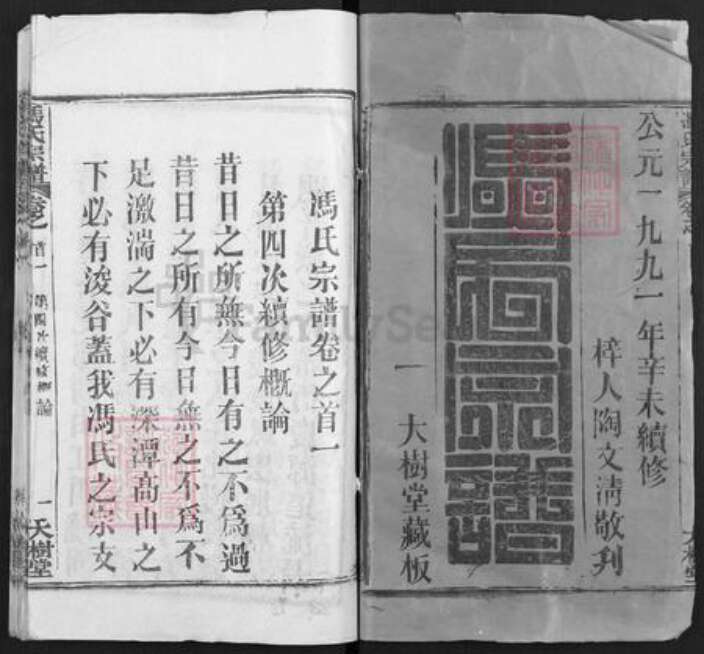 公元一九九一年辛未續修
梓人陶文清敬刋
馮氏宗譜
一 大樹堂藏板
馮氏宗譜卷之首一
第四次續修概論
昔日之所無今日有之不為過
昔日之所有今日無之不為不
足激湍之下必有深潭高山之
下必有浚谷蓋我馮氏之宗支
馮氏宗譜
卷之
首一
第四次續修概論
一
大樹堂
大樹堂
FamilySe